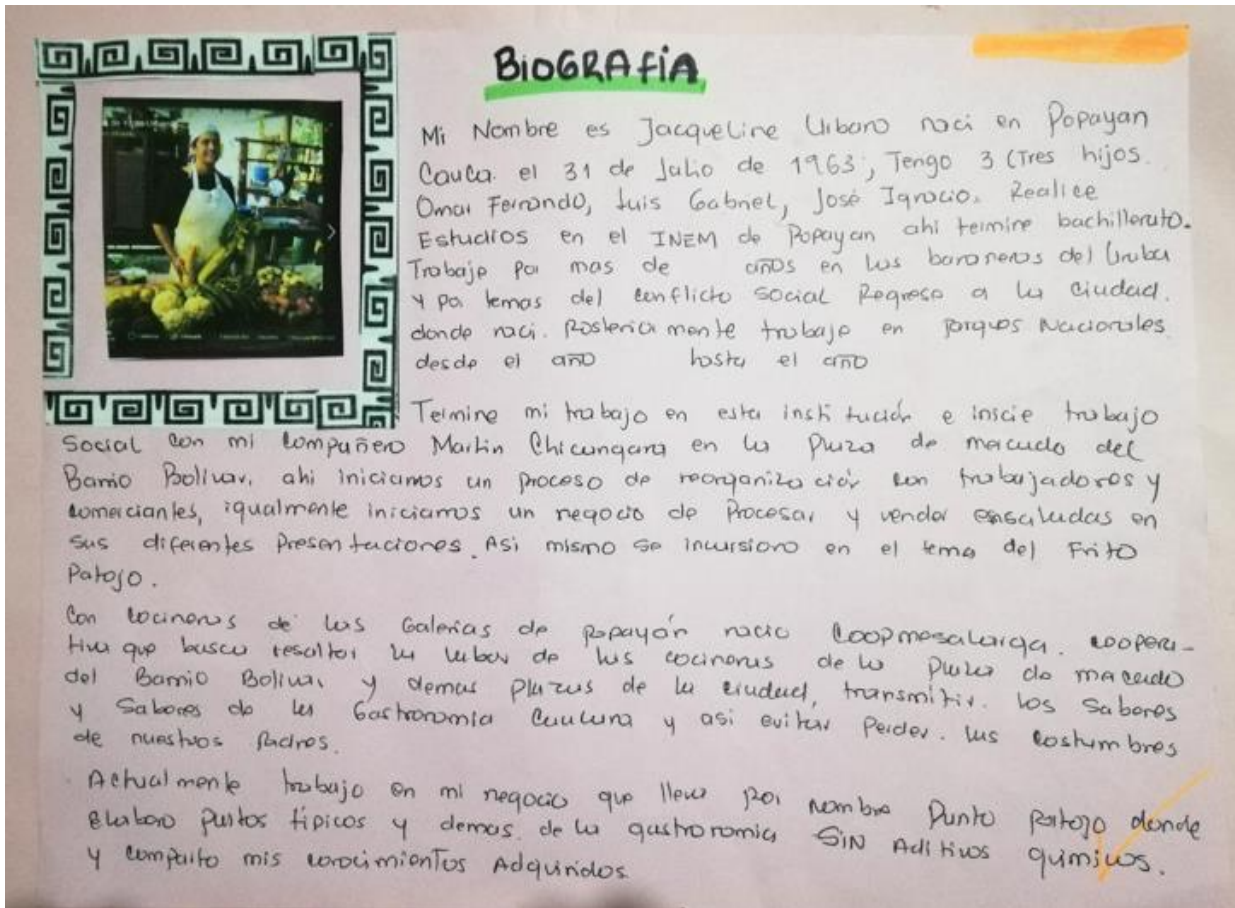 BIOGRAFÍA
Mi Nombre es Jacqueline Urbano naci en Popayan
Cauca. el 31 de Julio de 1963, Tengo 3 (Tres hijos.
Omar Fernando, Luis Gabriel, José Ignacio. Realice
Estudios en el INEM de Popayan ahi termine bachillerato.
Trabaje por mas de años en las bananeras del Uraba
y por temas del conflicto social Regreso a la ciudad.
donde naci. Posteriormente trabajo en parques Nacionales
desde el año hasta el año
Termine mi trabajo en esta institución e inicie trabajo
Social con mi compañero Martin Chicangana en la plaza de mercado del
Barrio Bolivar, ahi iniciamos un proceso de reorganización con trabajadores y
comerciantes, igualmente iniciamos un negocio de Procesar y vender ensaladas en
sus diferentes Presentaciones. Asi mismo se incursiono en el tema del Frito
Patojo.
Con cocineras de las Galerias de popayán nacio Coopmesalarga. coopera-
tiva que busca resaltar la labor de las cocineras de la Plaza de mercado
del Barrio Bolivar y demas plazas de la ciudad, transmitir. los Saberes
y Sabores de la Gastronomia Caucana y asi evitar Perder. las costumbres
de nuestros Padres.
Actualmente trabajo en mi negocio que lleva por nombre Punto patojo donde
elaboro platos típicos y demas. de la gastronomia SIN Aditivos quimicos.
y comparto mis conocimientos Adquiridos